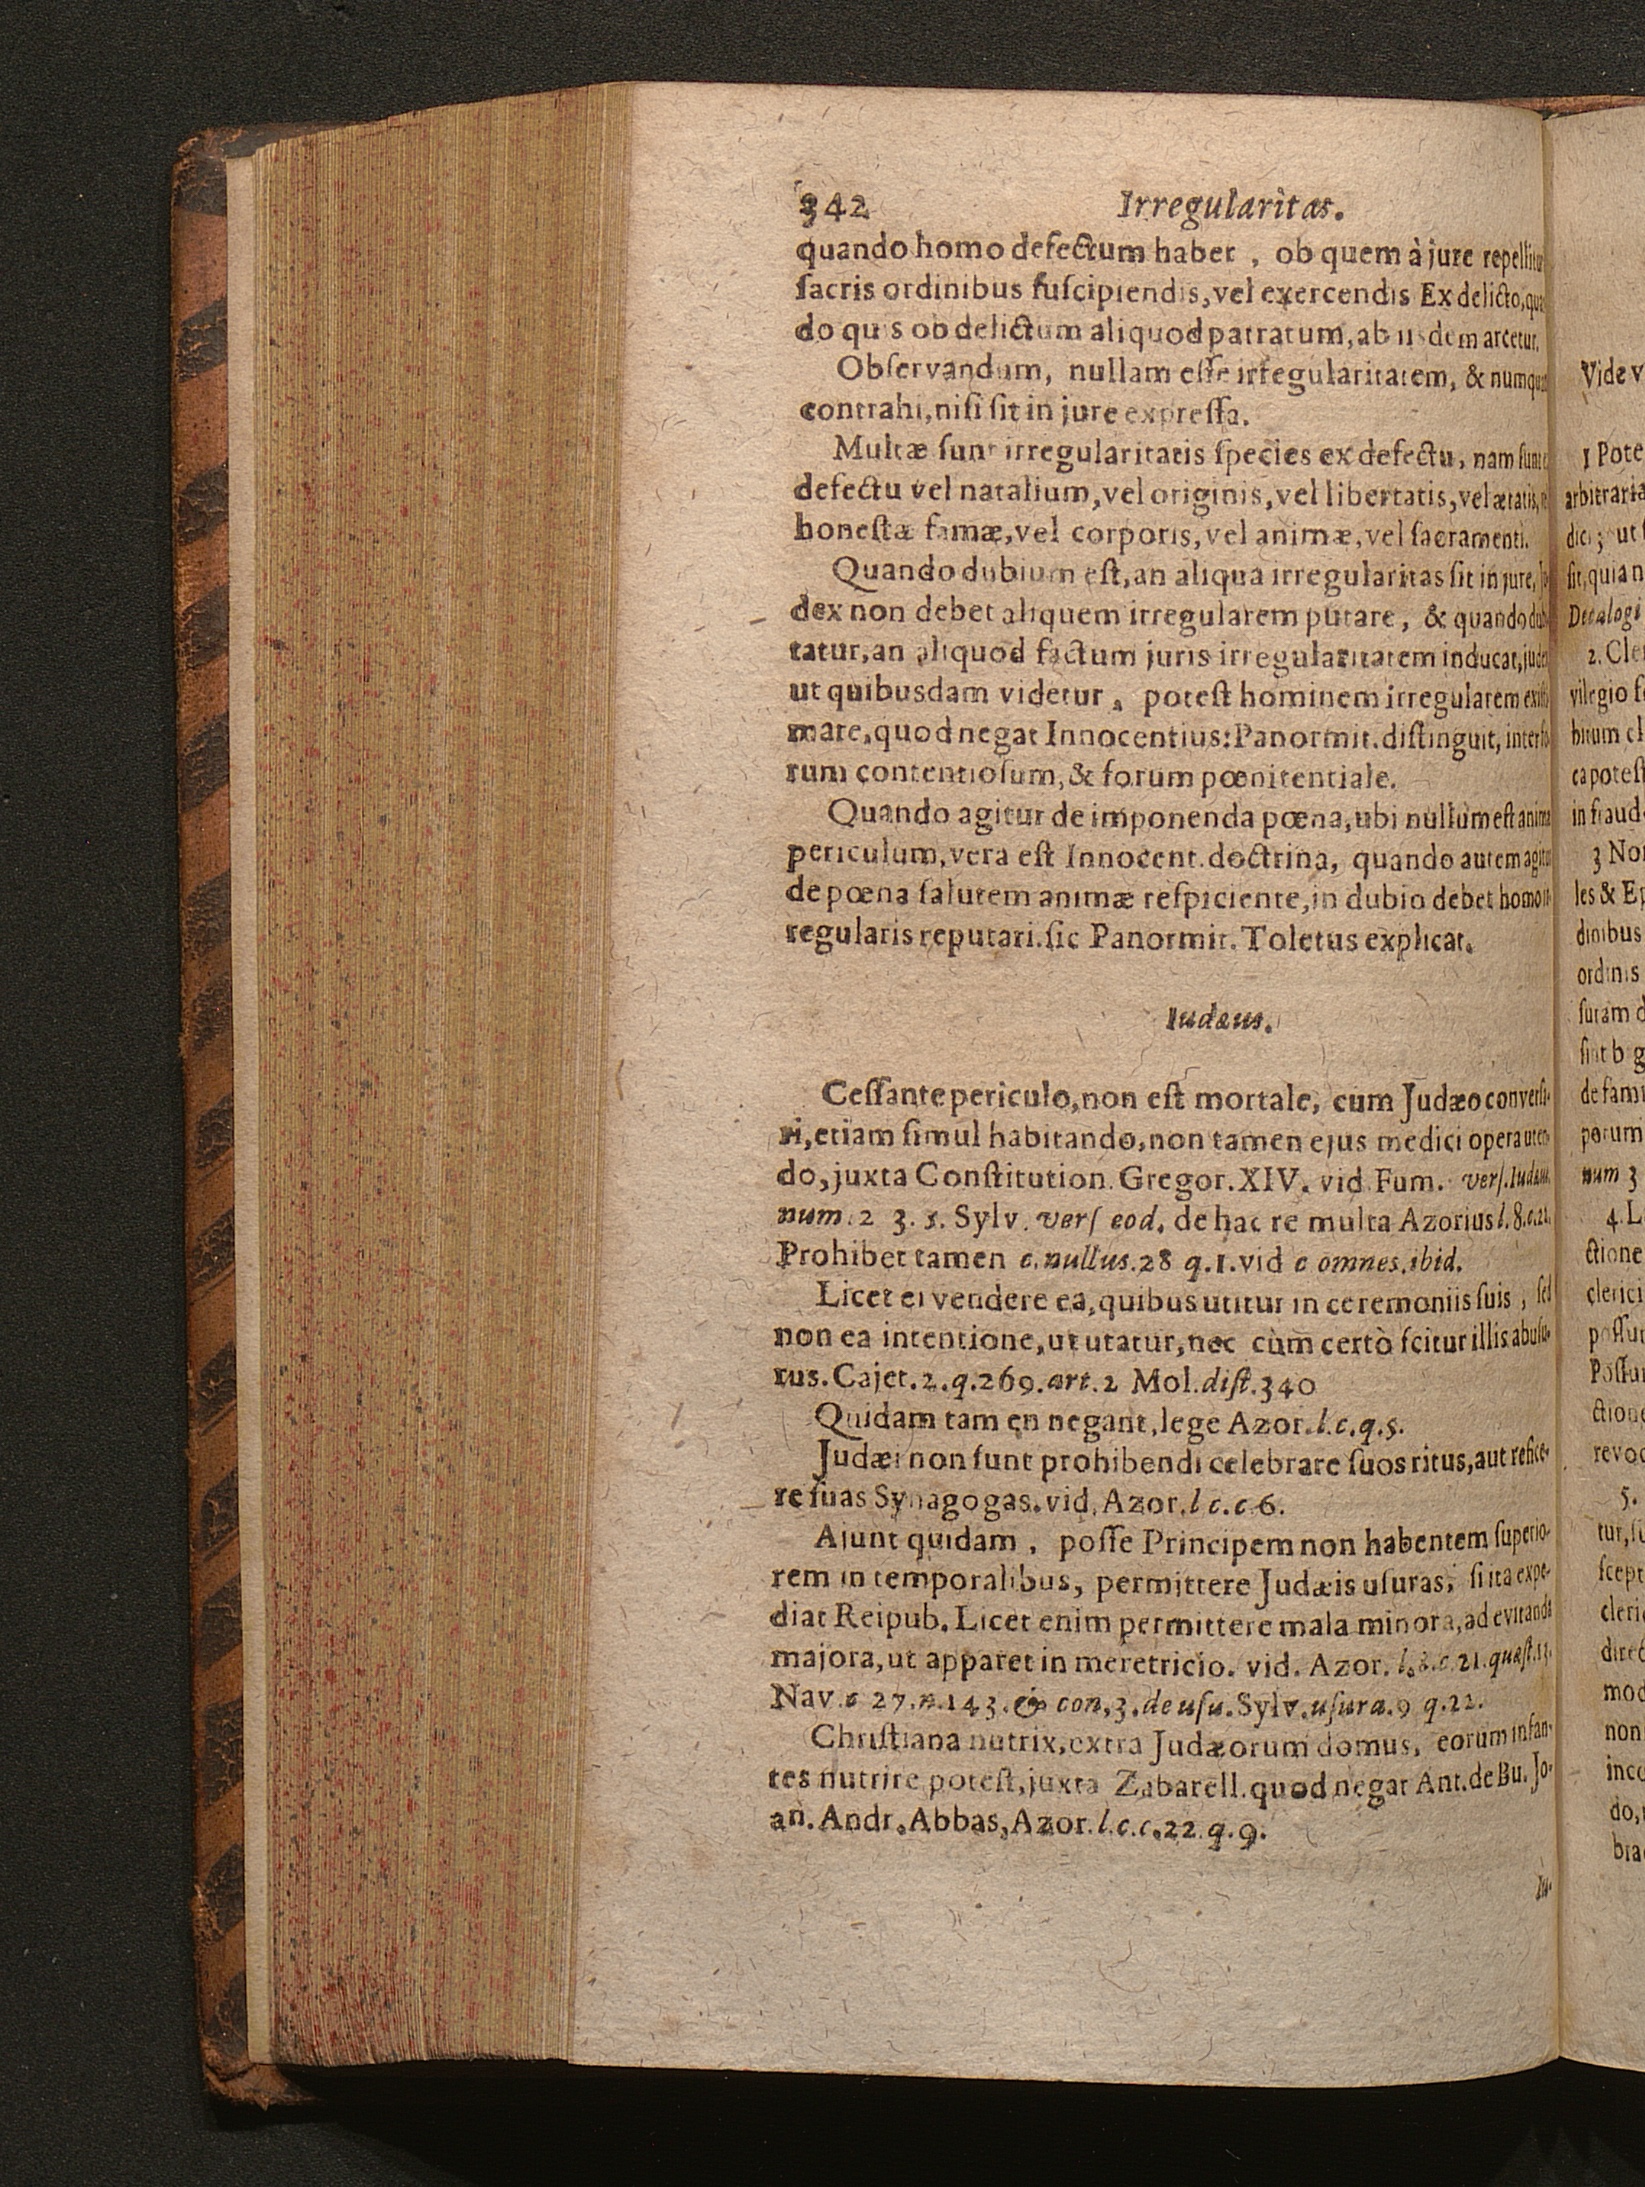 342 Irregularitas.
quando homo defectum habet, ob quem à jure repellitur
ſacris ordinibus ſuſcipiendis, vel exercendis Ex delicto, quã
do quis ob delictum aliquod patratum, ab iisdem arcetur.
Obſervandum, nullam eſſe irregularitatem, & numquã
contrahi, niſi ſit in jure expreſſa.
Multæ ſunt irregularitatis ſpecies ex defectu, nam ſunt
defectu vel natalium, vel originis, vel libertatis, vel ætatis,
honeſtæ famæ, vel corporis, vel animæ, vel ſacramenti.
Quando dubium eſt, an aliqua irregularitas ſit in jure,
dex non debet aliquem irregularem putare, & quando dubi
tatur, an aliquod factum juris irregularitatem inducat, judex
ut quibusdam videtur, poteſt hominem irregularem exiſti
mare, quod negat Innocentius: Panormit. diſtinguit, inter fo
rum contentioſum, & forum pœnitentiale.
Quando agitur de imponenda pœna, ubi nullum eſt animæ
periculum, vera eſt Innocent. doctrina, quando autem agitur
de pœna ſalutem animæ reſpiciente, in dubio debet homo ir
regularis reputari. ſic Panormit. Toletus explicat.
Iudæus.
Ceſſante periculo, non eſt mortale, cum Judæo converſa-
ri, etiam ſimul habitando, non tamen ejus medici opera uten-
do, juxta Conſtitution. Gregor. XIV. vid. Fum. verſ. Iudæus
num. 2 3. 5. Sylv. verſ eod. de hac re multa Azorius l. 8. c. 22.
Prohibet tamen c. nullus. 28 q. 1. vid c omnes. ibid.
Licet ei vendere ea, quibus utitur in ceremoniis ſuis, ſed
non ea intentione, ut utatur, nec cùm certò ſcitur illis abuſu-
rus. Cajet. 2. q. 269. art. 2 Mol. diſt. 340
Quidam tam en negant, lege Azor. l. c. q. 5.
Judæi non ſunt prohibendi celebrare ſuos ritus, aut refice-
re ſuas Synagogas. vid. Azor. l c. c 6.
Ajunt quidam, poſſe Principem non habentem ſuperio-
rem in temporalibus, permittere Judæis uſuras, ſi ita expe-
diat Reipub. Licet enim permittere mala minora, ad evitanda
majora, ut apparet in meretricio. vid. Azor. l. 8. c. 21. quæſt. 13.
Nav. c 27. n. 143. & con. 3. de uſu. Sylv. uſura. 9 q. 22.
Chriſtiana nutrix, extra Judæorum domus, eorum infan-
tes nutrire poteſt, juxta Zabarell. quod negat Ant. de Bu. Jo-
an. Andr. Abbas, Azor. l. c. c. 22. q. 9.
Iu-
Vide v
1 Pote
arbitraria
ſit, quia n
Decalogi
2. Cle
vilegio
bitum cl
ea poteſt
in fraud
3 No
les & Ep
dinibus
ordinis
de fam
num 3
4. L
ctione
clerici
revoc
5.